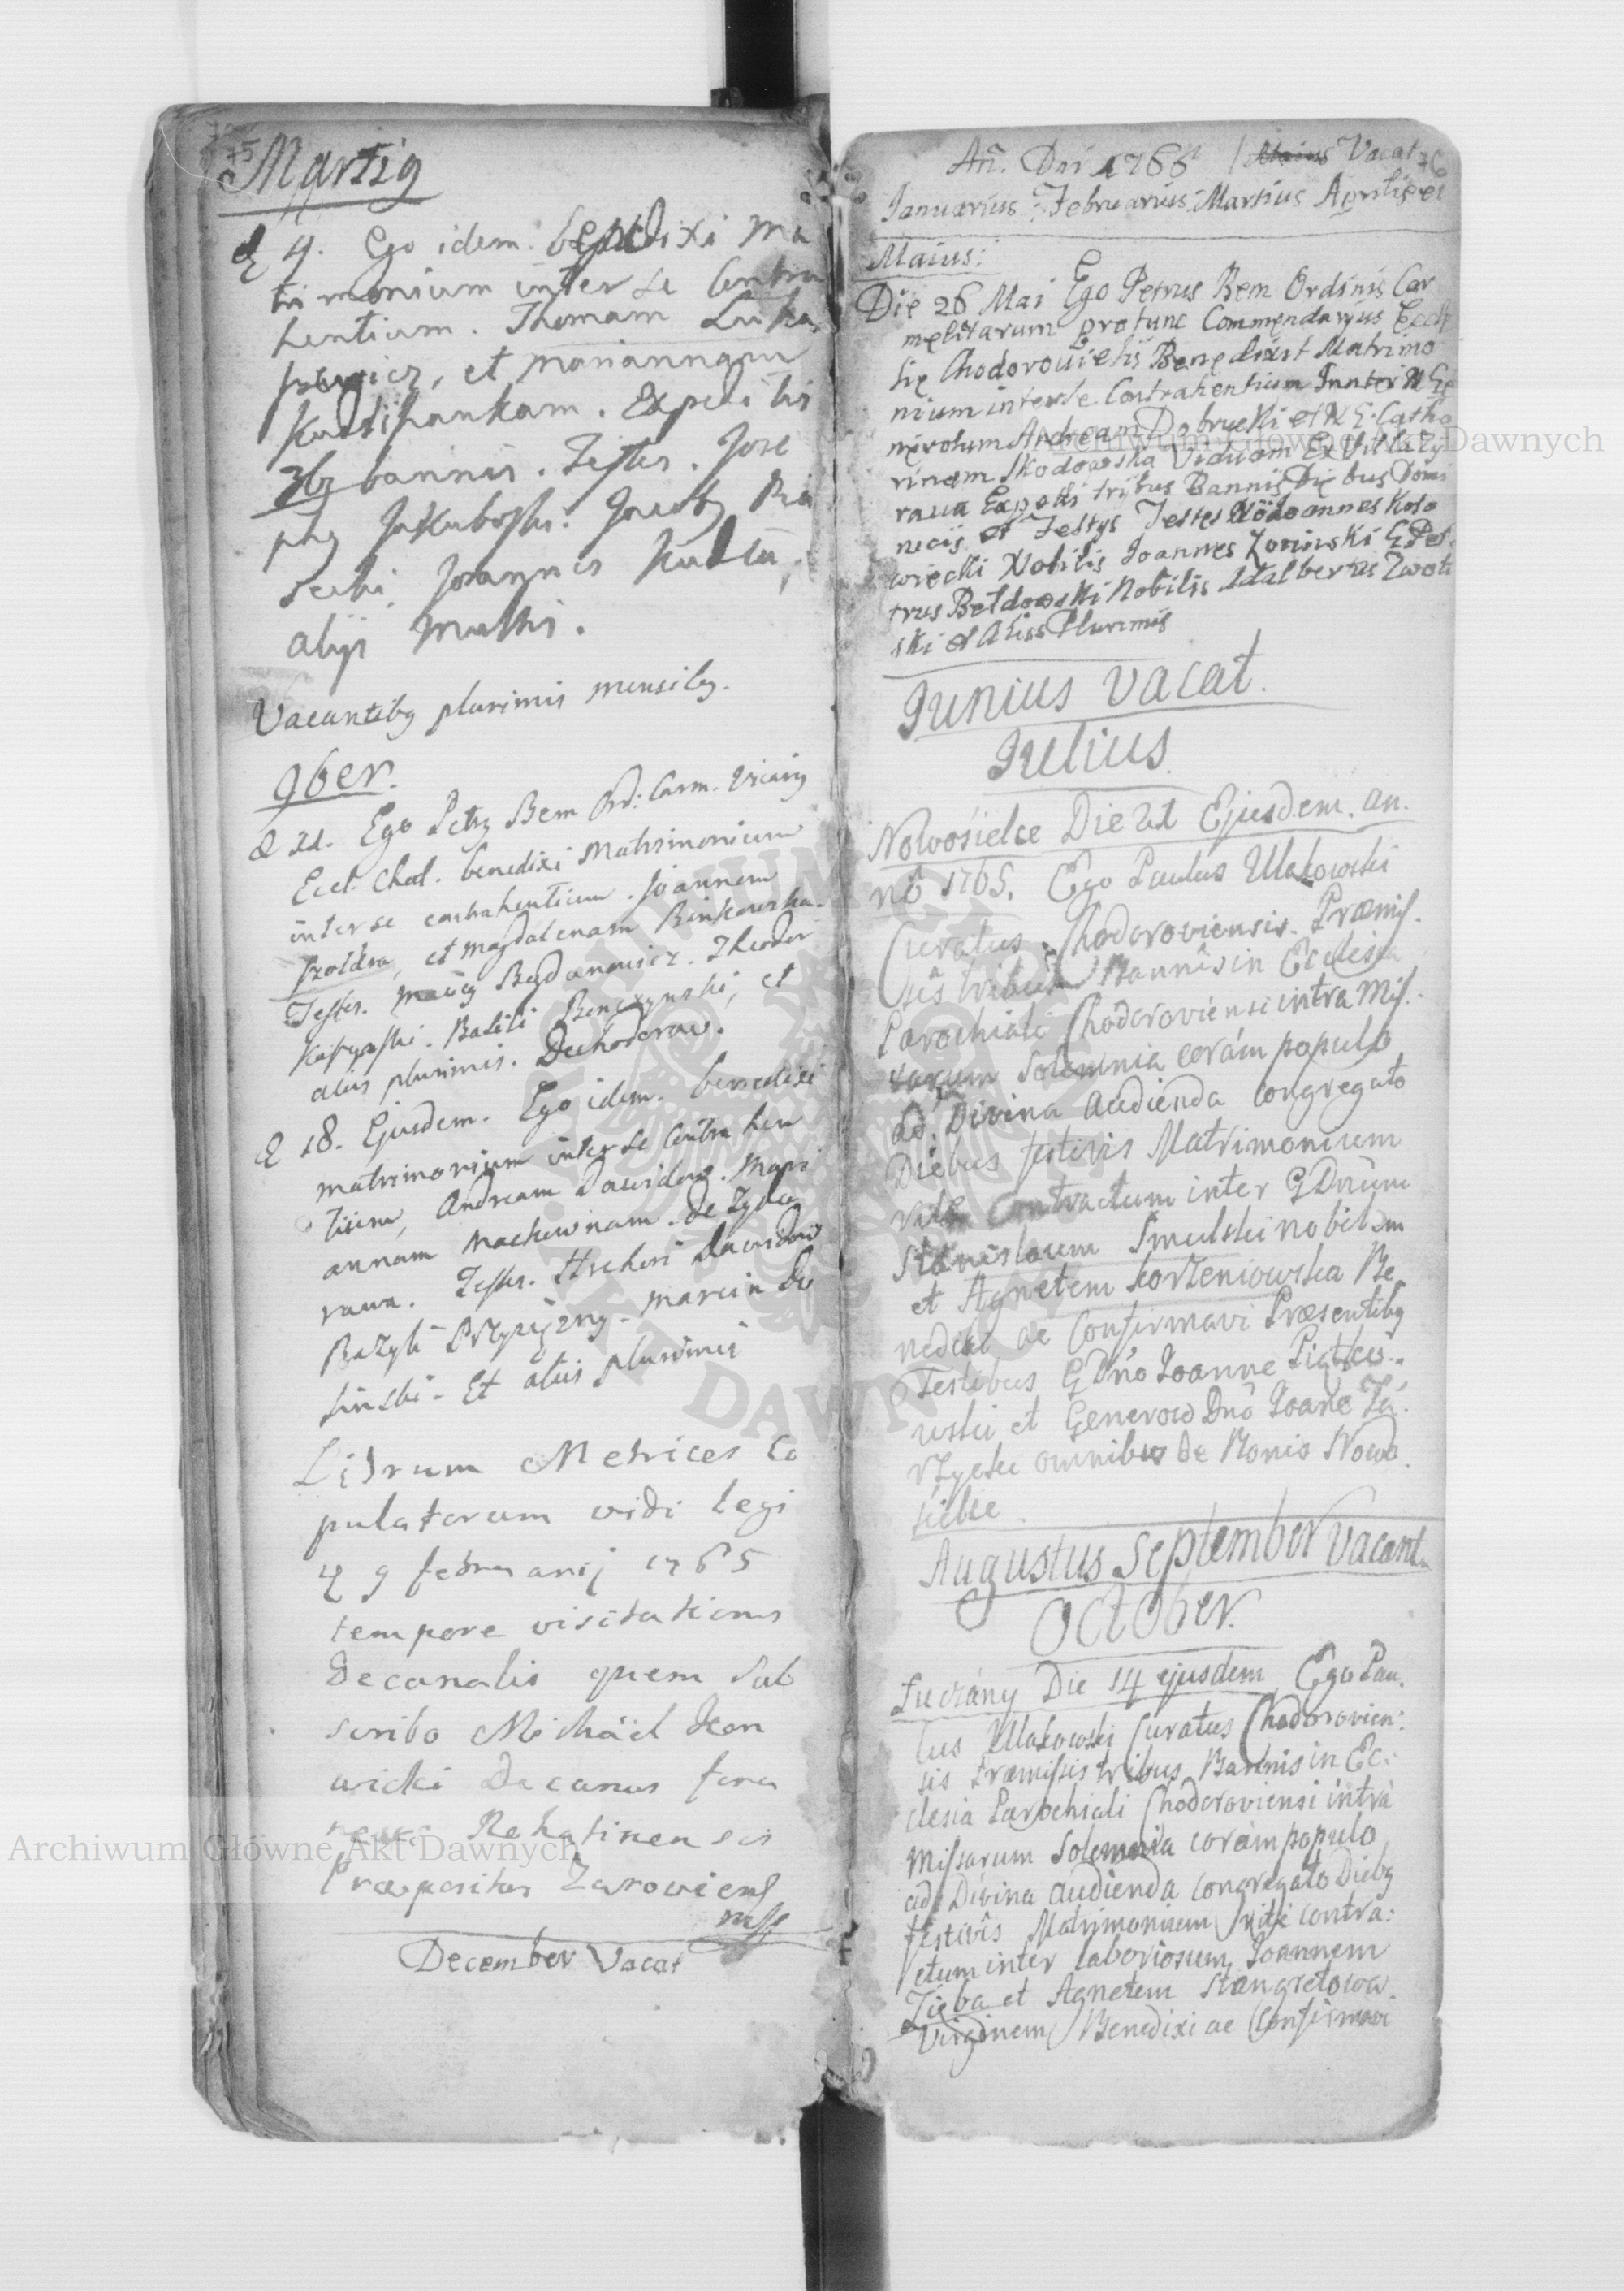 75
Martig
d 4. Ego idem benedixi Ma
trimonium inter se Contra
hentium. Thomam Luka
szewicz, et Mariannam
Expeditis
3bg bannis. Testes. Jose
phg Jakuboski. Jacobg
Joannes
alijs Multis.
Vacantibg plurimis mensibg.
9ber.
d 21. Ego Petrg Bem Ord: Carm. Vicarig
Eccl. Chod. benedixi Matrimonium
inter se contrahentium. Joannem
et Magdalenam Binkowska.
Testes. Bogdanowicz. Theodor
Basili et
aliis plurimis. Dechodorow.
d 18. Ejusdem. Ego idem. benedixi
matrimonium inter se Contrahen
tium, Andream Dawidow. Mari
annam Machownam. de Zyda
rawa. Testes. Dawidow
Bazyli Marcin Do
Et aliis plurimis
Librum Metrices Co
pulatorum vidi legi
d 9 februarij 1765
tempore visitationis
Decanalis quem Sub
scribo Michaël Kon
wicki Decanus fora
neus Rohatinensis
Præpositus Zurowiens
mpp
December Vacat
An. Dni 1766 Maius Vacat 76
Januarius Februarius Martius Aprilis et
Maius:
Die 26 Mai Ego Petrus Bem Ordinis Car
melitarum protunc Commendarius Eccle
sie Chodoroviensis Benedixit Matrimo
nium inter se Contrahentium Innter N Ge
nerosum Andream Dobrucki et N G. Catha
rinam Skodowska Viduam Ex Villa Zy
rawa Expeti tribus Bannis Diebus Domi
necis et Festys Testes Joannes Koto
wiecki Nobilis Joannes Zorinski G Pet
trus Betdowski Nobilis Adalbertus
ski et Aliss Plurimis
Junius Vacat.
Julius.
Nowosielce Die 21 Ejusdem. an.
nô 1765. Ego Paulus Ulakowski
Curatus Chodoroviensis. Præmis.
sis tribus Bannis in Ecclesia
Parochiali Chodoroviensi intra Mis.
sarum Solemnia coràm populo
ad Divina audienda congregato
Diebus festivis Matrimonium
ritè Contractum inter G Dnum
Stanislaum Smulski nobilem
et Agnetem Korzeniowska Be
nedixi ac Confirmavi Præsentibg
Testibus G Dnó Joanne Piątko.
wski et Generoso Dnô Joane Za.
rzycki omnibus de Bonis Nowo.
sielce
Augustus September Vacant.
October.
Łuczány Die 14 ejusdem Ego Pau.
lus Ulakowski Curatus Chodorovien:
sis Præmissis tribus Bannis in Ec:
clesia Parochiali Chodoroviensi intrà
Missarum Solemnia coràm populo
ad Divina audienda congregato Diebg
festivis Matrimonium ritè contra:
ctum inter laboriosum Joannem
Zięba et Agnetem Stangretowa.
Virginem Benedixi ac Confirmavi
Archiwum Główne Akt Dawnych
Archiwum Główne Akt Dawnych